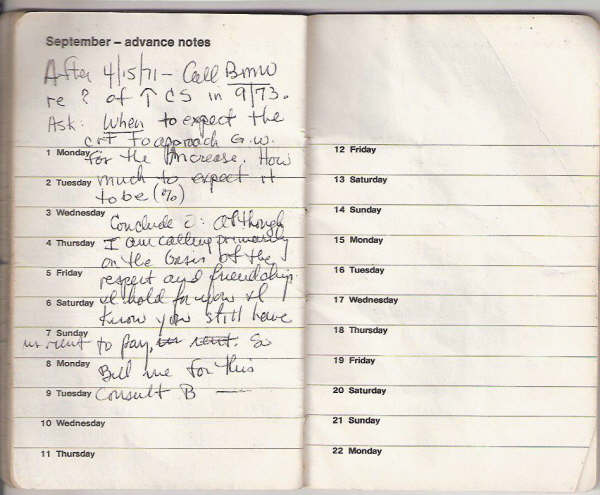 September – advance notes
After 4/15/71 – Call BMW
re ? of ↑ CS in 9/73.
Ask: When to expect the
crt to approach G.W.
1 Monday for the increase. How
2 Tuesday much to expect it
to be (%)
3 Wednesday
Conclude c̄: although
4 Thursday I am calling primarily
on the basis of the
5 Friday respect and friendship
6 Saturday I hold for you & I
know you still have
7 Sunday
rent to pay, so
8 Monday Bill me for this
9 Tuesday Consult B —
10 Wednesday
11 Thursday
12 Friday
13 Saturday
14 Sunday
15 Monday
16 Tuesday
17 Wednesday
18 Thursday
19 Friday
20 Saturday
21 Sunday
22 Monday